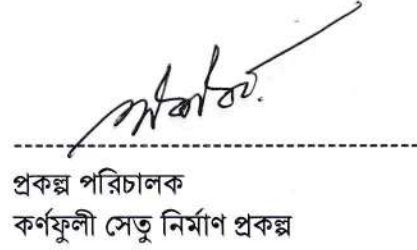 প্রকল্প পরিচালক
কর্ণফুলী সেতু নির্মাণ প্রকল্প